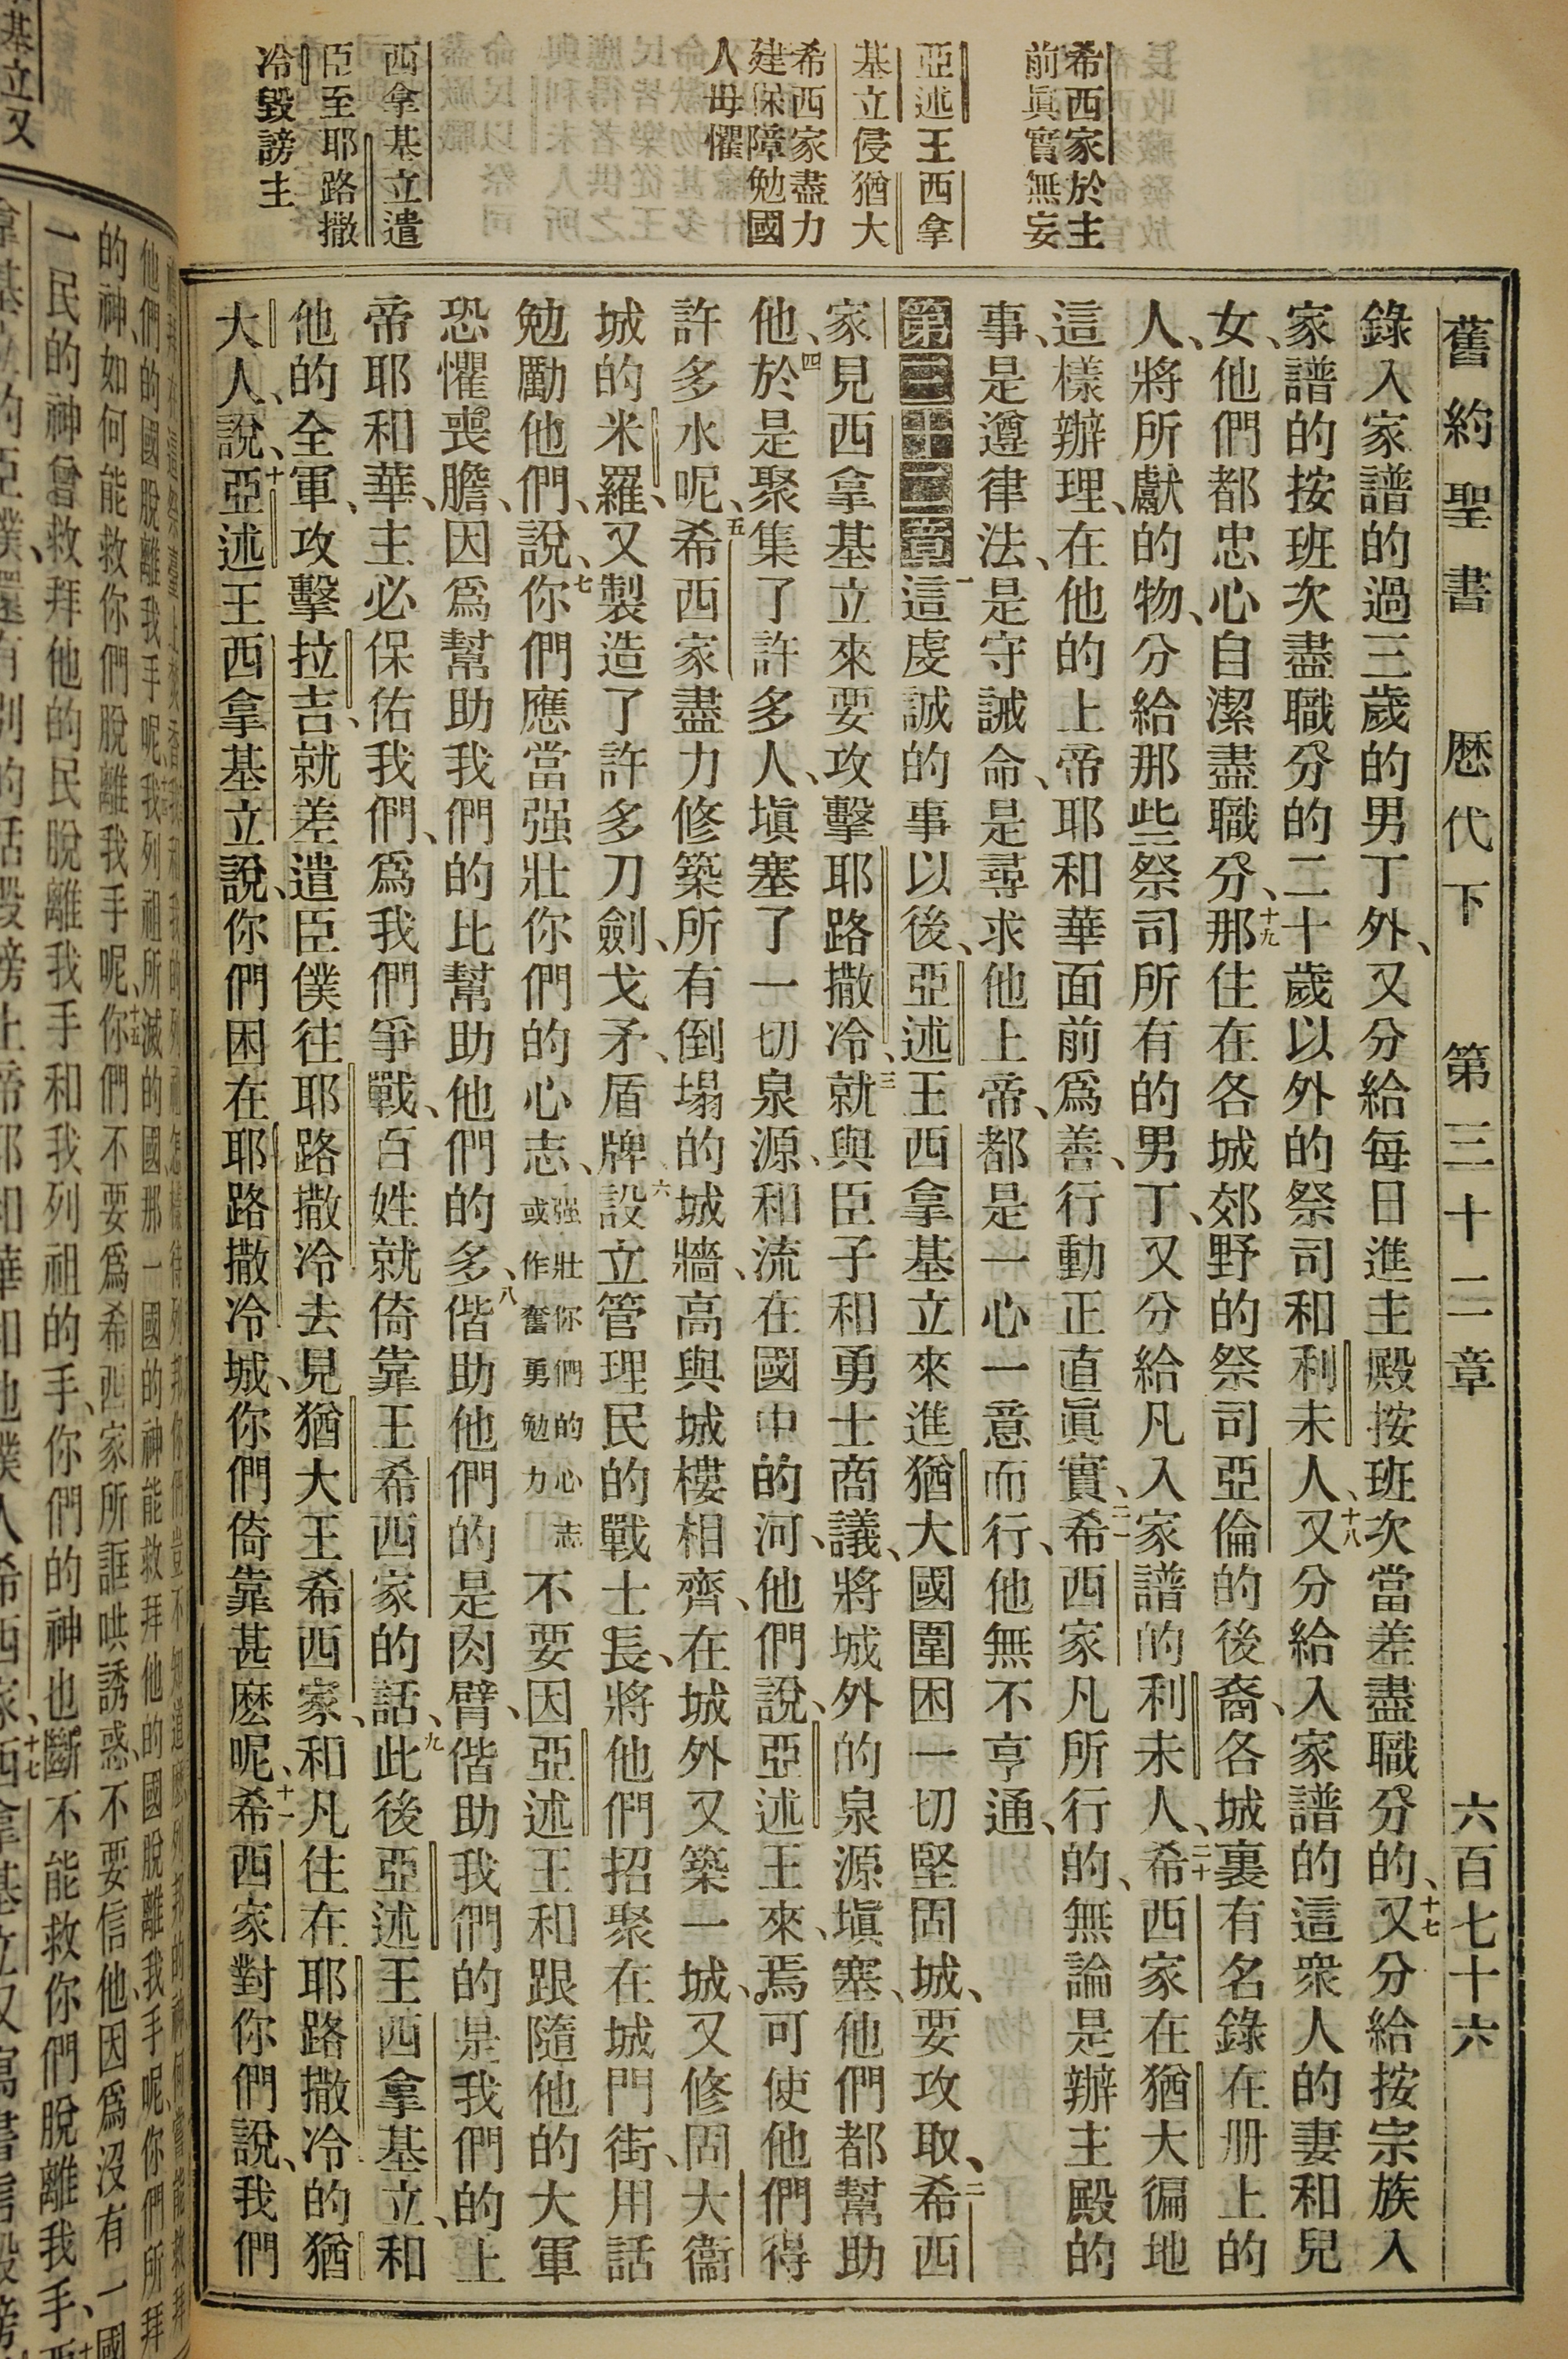 舊約聖書 歷代下 第三十二章 六百七十六
希西家於主
前眞實無妄
亞述王西拿
基立侵猶大
希西家盡力
建保障勉國
人毋懼
西拿基立遣
臣至耶路撒
冷毀謗主
錄入家譜的過三歲的男丁外、又分給每日進主殿按班次當差盡職分的、十七又分給按宗族入
家譜的按班次盡職分的二十歲以外的祭司和利未人、十八又分給入家譜的這衆人的妻和兒
女、他們都忠心自潔盡職分、十九那住在各城郊野的祭司亞倫的後裔、各城裏有名錄在册上的
人、將所獻的物、分給那些祭司所有的男丁、又分給凡入家譜的利未人、二十希西家在猶大徧地
這樣辦理、在他的上帝耶和華面前爲善、行動正直眞實、二一希西家凡所行的、無論是辦主殿的
事、是遵律法、是守誡命、是尋求他上帝、都是一心一意而行、他無不亨通、
第三十二章 一這虔誠的事以後、亞述王西拿基立來進猶大國圍困一切堅固城、要攻取、二希西
家見西拿基立來要攻擊耶路撒冷、三就與臣子和勇士商議、將城外的泉源塡塞、他們都幫助
他、四於是聚集了許多人、塡塞了一切泉源、和流在國中的河、他們說、亞述王來、焉可使他們得
許多水呢、五希西家盡力修築所有倒塌的城牆、高與城樓相齊、在城外又築一城、又修固大衞
城的米羅、又製造了許多刀劍、戈矛、盾牌、六設立管理民的戰士長、將他們招聚在城門街、用話
勉勵他們、說、七你們應當强壯你們的心志、强壯你們的心志或作奮勇勉力不要因亞述王和跟隨他的大軍
恐懼喪膽、因爲幫助我們的比幫助他們的多、八偕助他們的是肉臂、偕助我們的是我們的上
帝耶和華、主必保佑我們、爲我們爭戰、百姓就倚靠王希西家的話、九此後亞述王西拿基立、和
他的全軍、攻擊拉吉、就差遣臣僕往耶路撒冷去見猶大王希西家、和凡住在耶路撒冷的猶
大人、說、十亞述王西拿基立說、你們困在耶路撒冷城、你們倚靠甚麽呢、十一希西家對你們說、我們
的神、如何能救你們脫離我手呢、十五你們不要爲希西家所誆哄誘惑、不要信他、因爲沒有一國
一民的神曾救拜他的民脫離我手和我列祖的手、你們的神也斷不能救你們脫離我手、